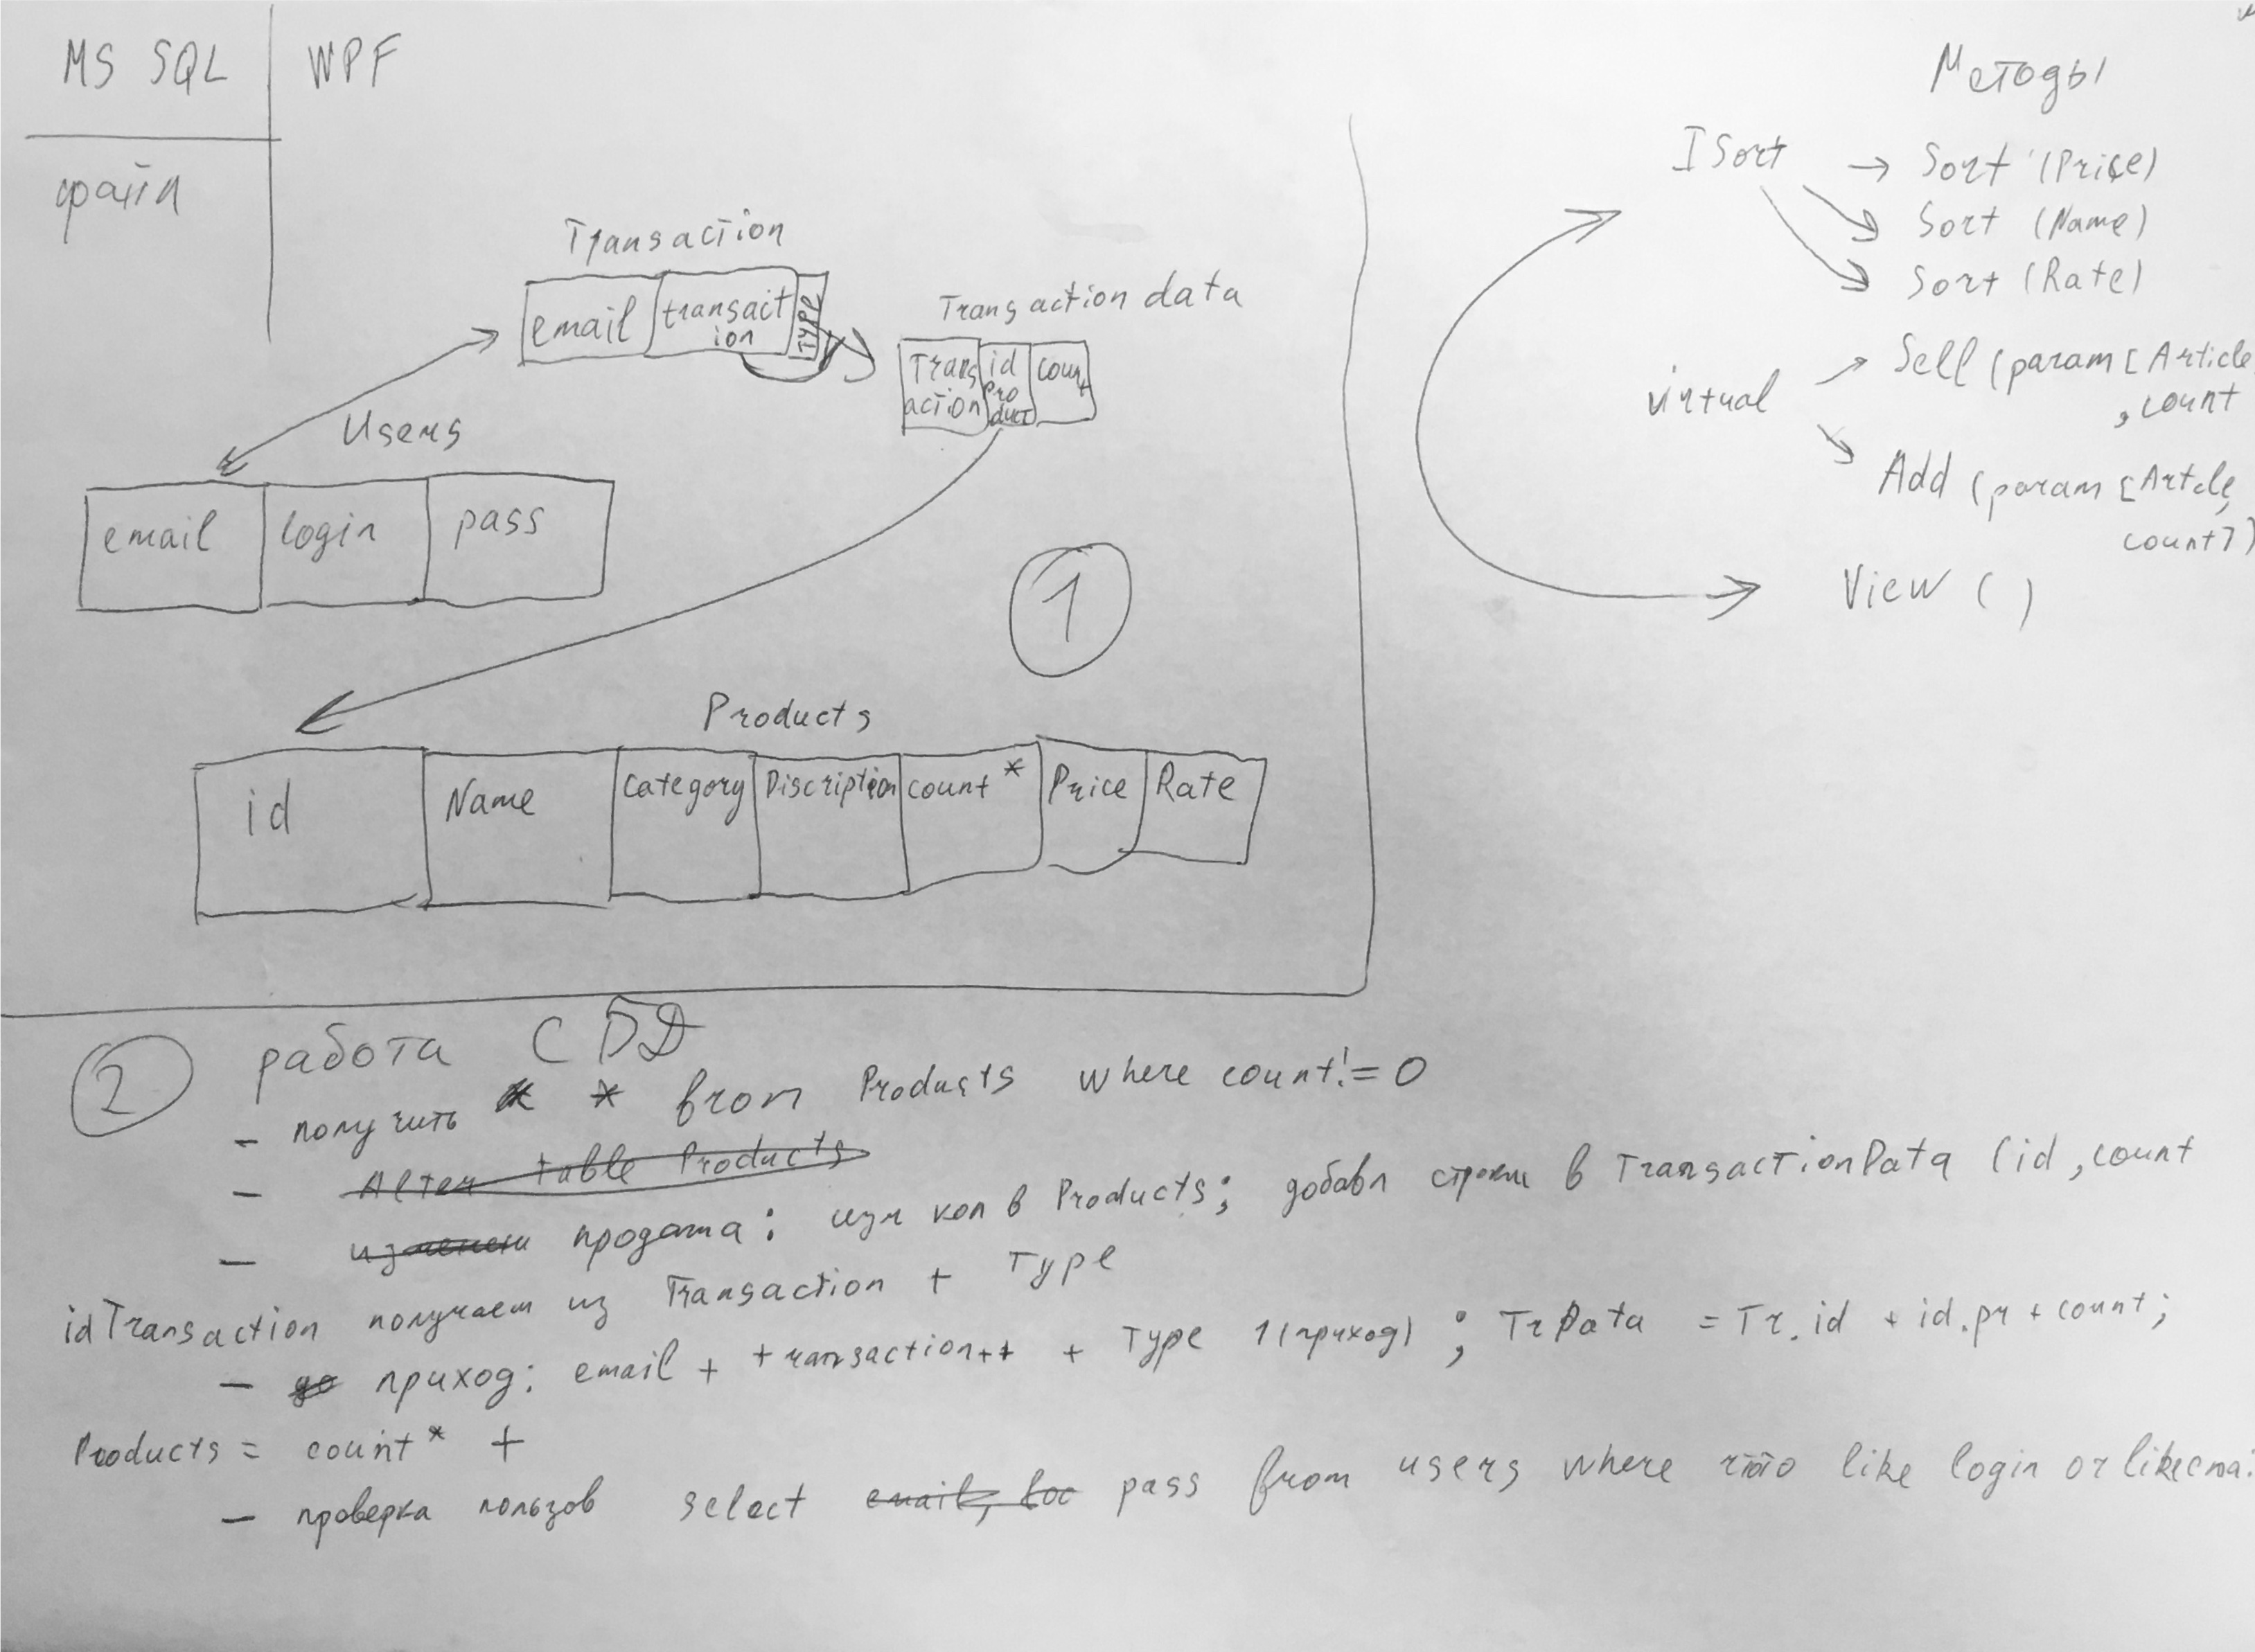 MS SQL
WPF
файл
Transaction
email
transact
ion
Type
Transaction data
Trans
action
id
pro
duct
count
Users
email
login
pass
1
Products
id
Name
Category
Discription
count *
Price
Rate
Методы
ISort → Sort (Price)
Sort (Name)
Sort (Rate)
virtual
Sell (param [Article
, count
Add (param [Artcle,
count])
View ( )
2 работа с БД
- получить * from Products where count != 0
- Alter table Products
- продажа: изм кол в Products; добавл строки в TransactionData (id, count
idTransaction получаем из Transaction + Type
- приход: email + transaction++ + Type 1(приход) ; TrData = Tr.id + id.pr + count;
Products = count* +
- проверка пользов select email, pass from users where like login or like